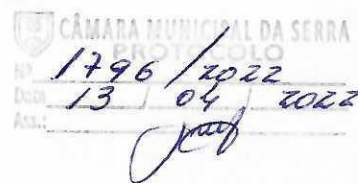 CÂMARA MUNICIPAL DA SERRA
PROTOCOLO
Nº 1796/2022
Data 13 / 04 / 2022
Ass.: